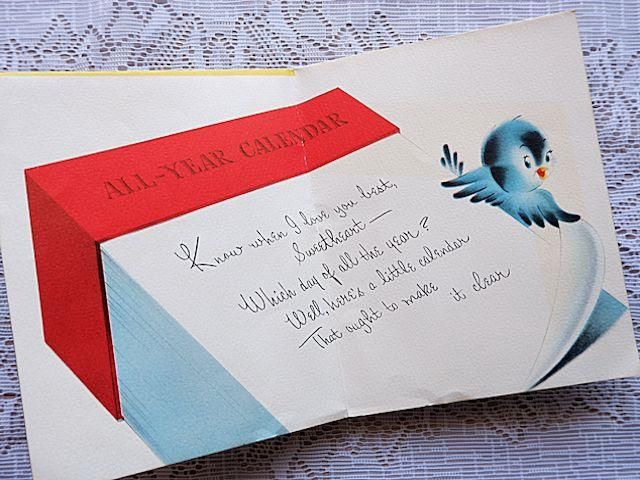 ALL-YEAR CALENDAR
Know when I love you best,
Sweetheart —
Which day of all the year?
Well, here's a little calendar
That ought to make it clear